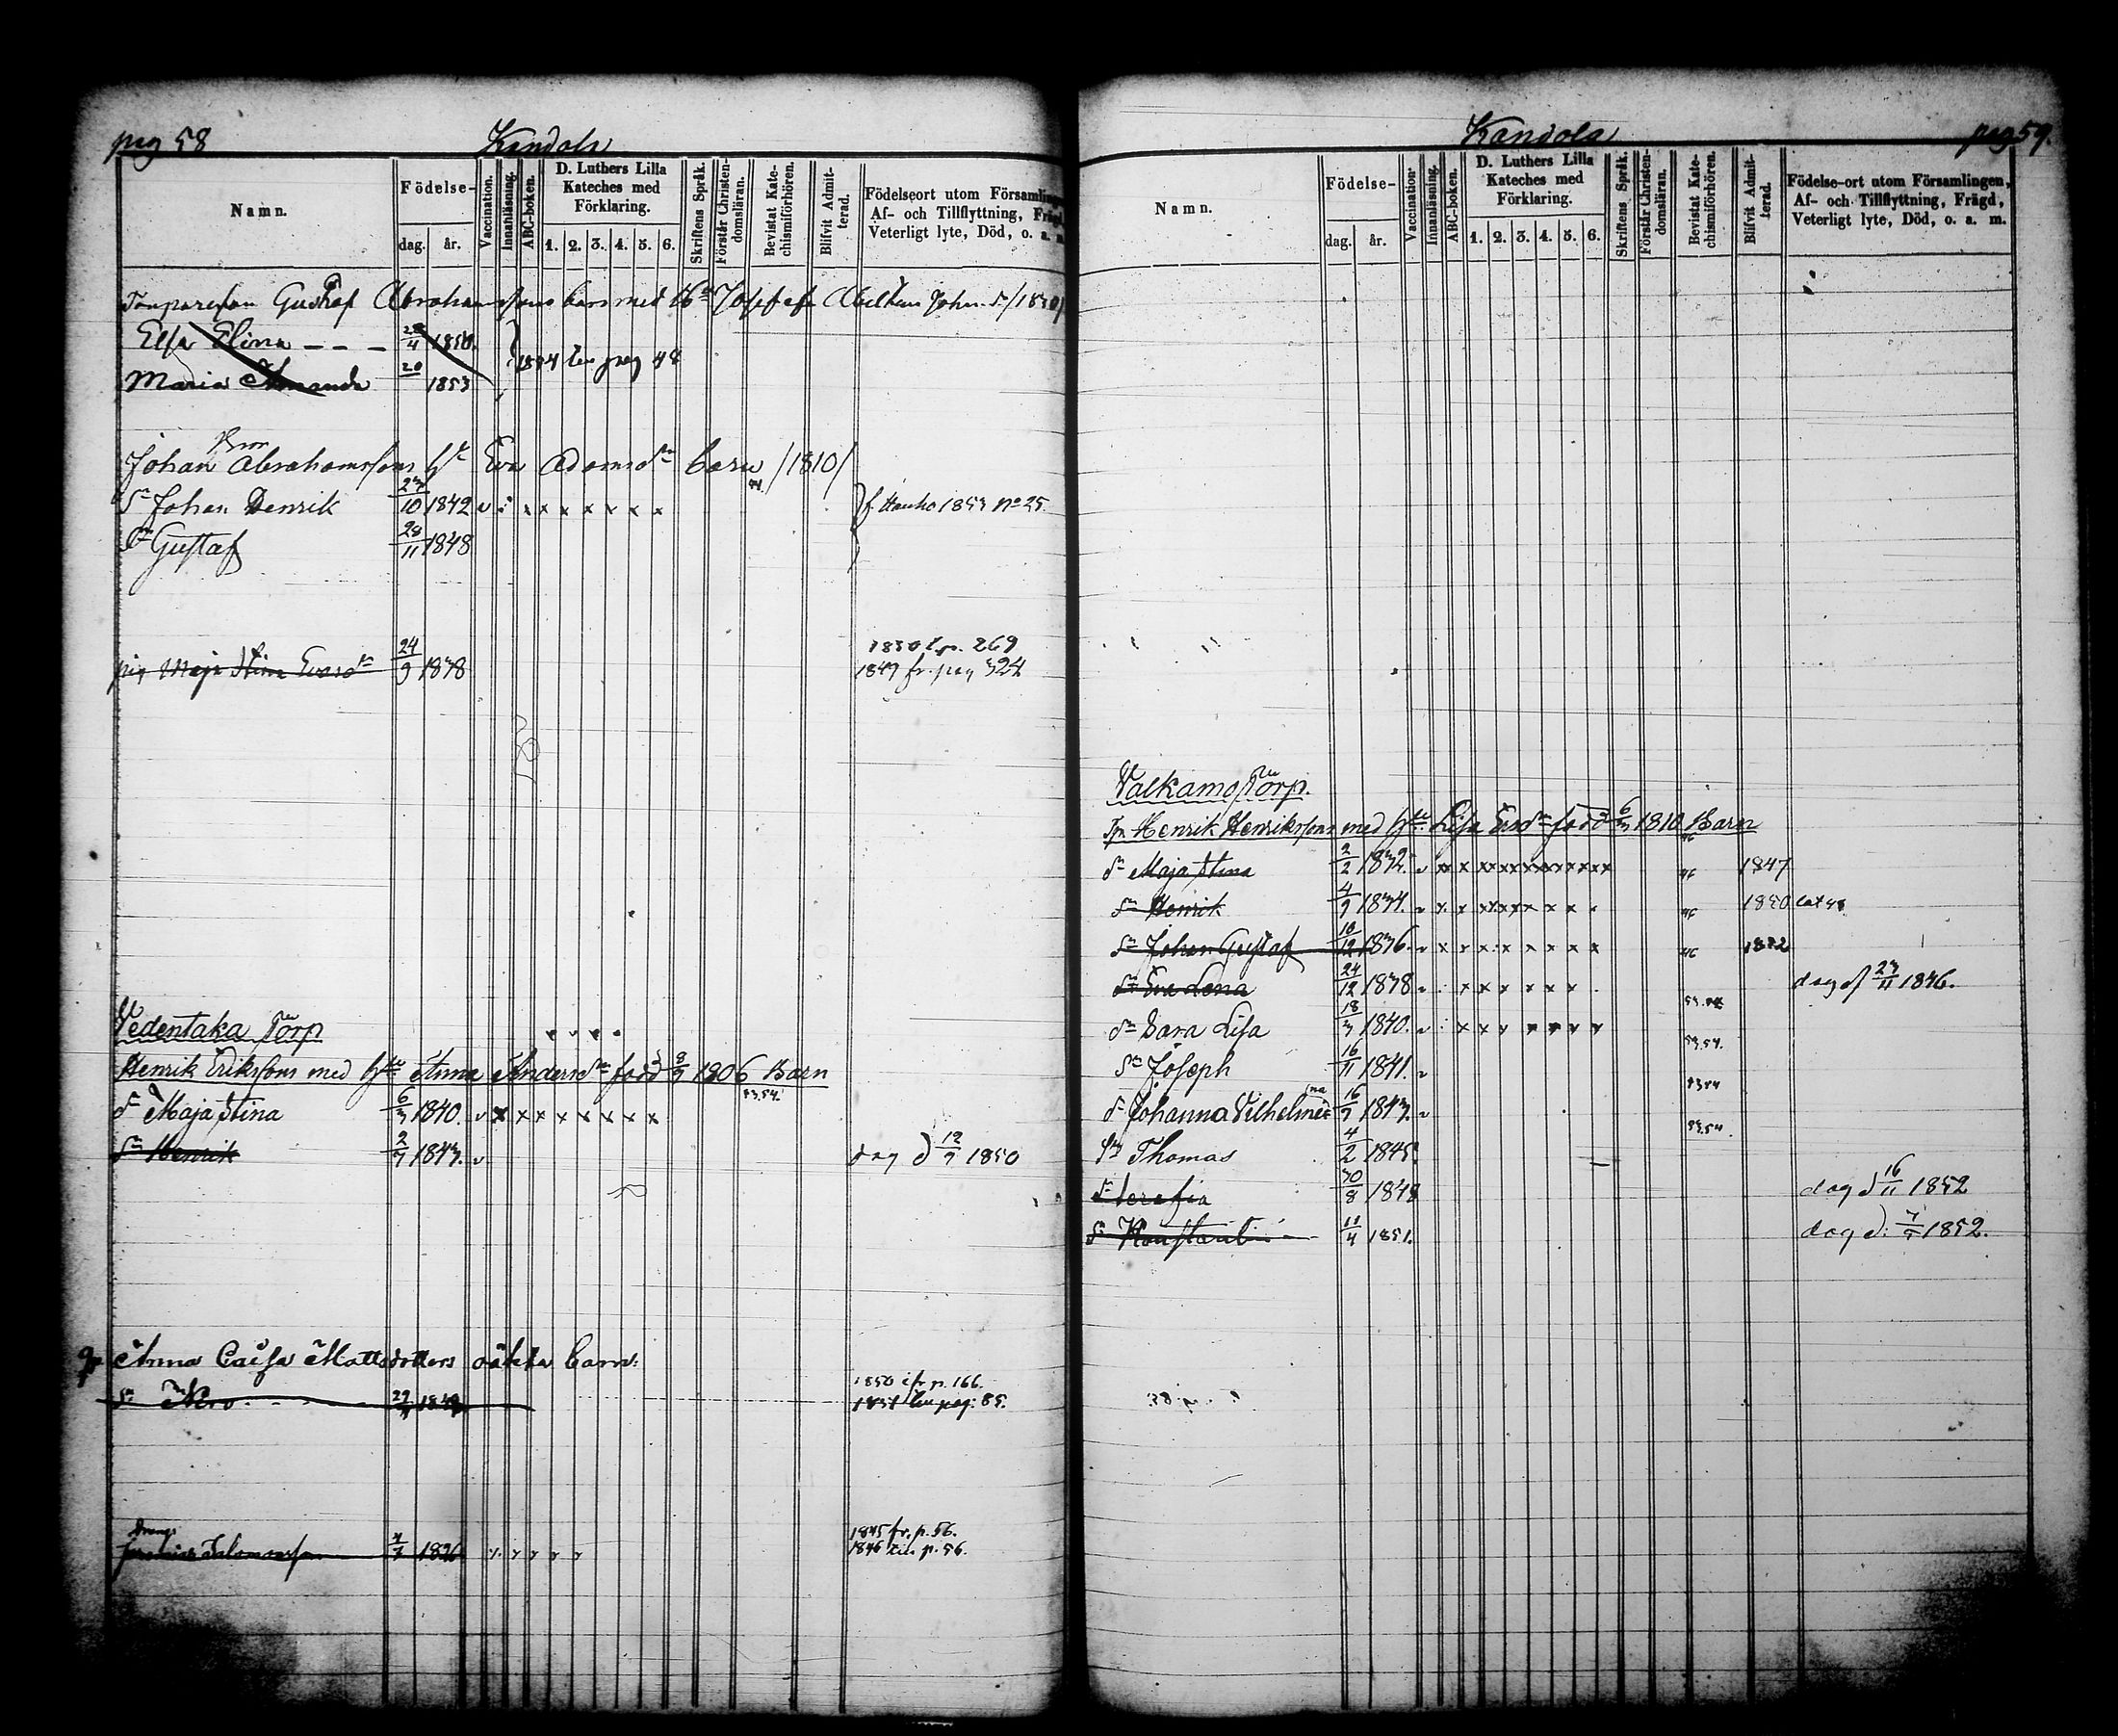 pag 58
Kandola
Namn.
Födelse-
dag.
år.
Vaccination.
Innanläsning.
ABC-boken.
D. Luthers Lilla
Kateches med
Förklaring.
1. 2. 3. 4. 5. 6.
Skriftens Språk.
Förstår Christen-
domsläran.
Bevistat Kate-
chismiförhören.
Blifvit Admit-
terad.
Födelseort utom Församlingen
Af- och Tillflyttning, Frägd
Veterligt lyte, Död, o. a. m.
Gustaf Abrahamssons barn med
Elsa Elina 4 1850.
Maria Amanda 20 1853
1854 till pag 48
Johan Abrahamssons h Eva Adamsdr barn /1810/
Sn Johan Henrik 23/10 1842 v x x x x x x x
f Hauho 1853 No 25.
Sn Gustaf 28/11 1848
pig Maja Stina Evasdr 24/9 1838
1850 t p. 269
1849 fr. pag 324
Vedentaka Torp
Henrik Erikssons med Hu Anna Andersdr född 8/9 1806 Barn
53.54.
dr Maja Stina 6/3 1840. v x x x x x x x x
Sn Henrik 2/7 1843. v
dog d 12/7 1850
Anna Caisa Mattsdotters oäkta barn:
Sn
1850 ifr p. 166.
1851 till pag: 85.
Dräng
Jeremias Salomonsson 1826
1845 fr. p. 56.
1846 till p. 56.
Kandola
pag 59.
Namn.
Födelse-
dag.
år.
Vaccination.
Innanläsning.
ABC-boken.
D. Luthers Lilla
Kateches med
Förklaring.
1. 2. 3. 4. 5. 6.
Skriftens Språk.
Förstår Christen-
domsläran.
Bevistat Kate-
chismiförhören.
Blifvit Admit-
terad.
Födelse-ort utom Församlingen,
Af- och Tillflyttning, Frägd,
Veterligt lyte, Död, o. a. m.
Valkamo Torp
Henrik Henrikssons med Hu Lisa Ersdr född 6/3 1810 Barn
dr Maja Stina 2/2 1832. v x x x x x x x x 46 1847
Sn Henrik 4/9 1834. v x x x x x x x 46 1850
Sn Johan Gustaf 10/12 1836. v x x x x x x x x 46 1852
dr Eva Lena 24/12 1838 v x x x x x x
dog d 23/11 1846.
dr Sara Lisa 18/3 1840. v x x x x x x x 53.54
Sn Joseph 16/11 1841. v 53.54.
dr Johanna Vilhelmina 16/7 1843. v 53.54
Sn Thomas 4/2 1845. 53.54.
dr Serafia 30/8 1848
dog d 16/11 1852
Sn Konstantin 11/4 1851.
dog d: 1852.